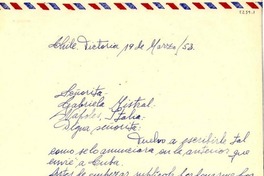 Chile. Victoria 19 de Marzo/53.
Señorita.
Gabriela Mistral.
Nápoles, Italia.
Digna señorita:
Vuelvo a escribirle tal
como se lo anunciara en la anterior que
envié a Cuba.
Antes de empezar